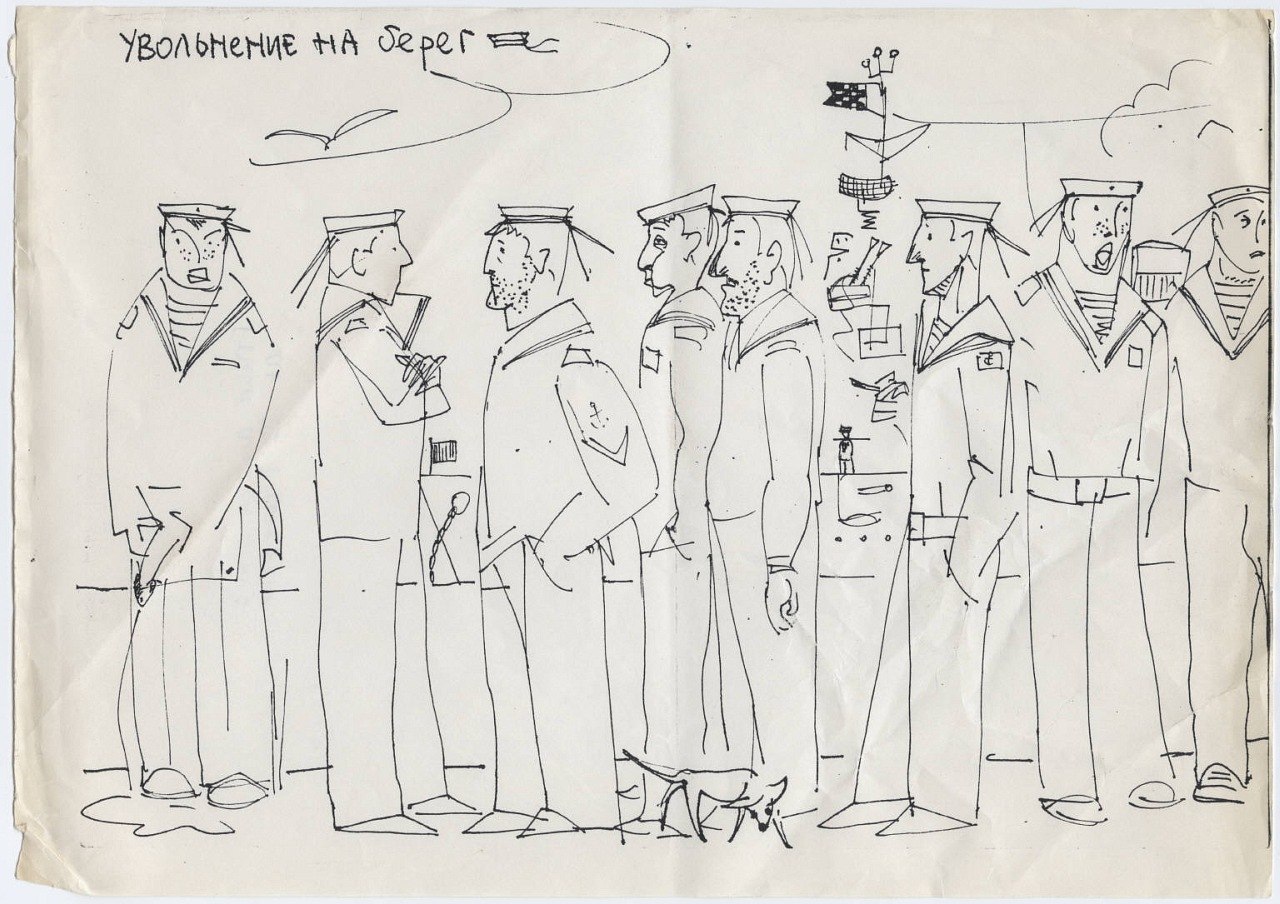 УВОЛЬНЕНИЕ НА берег